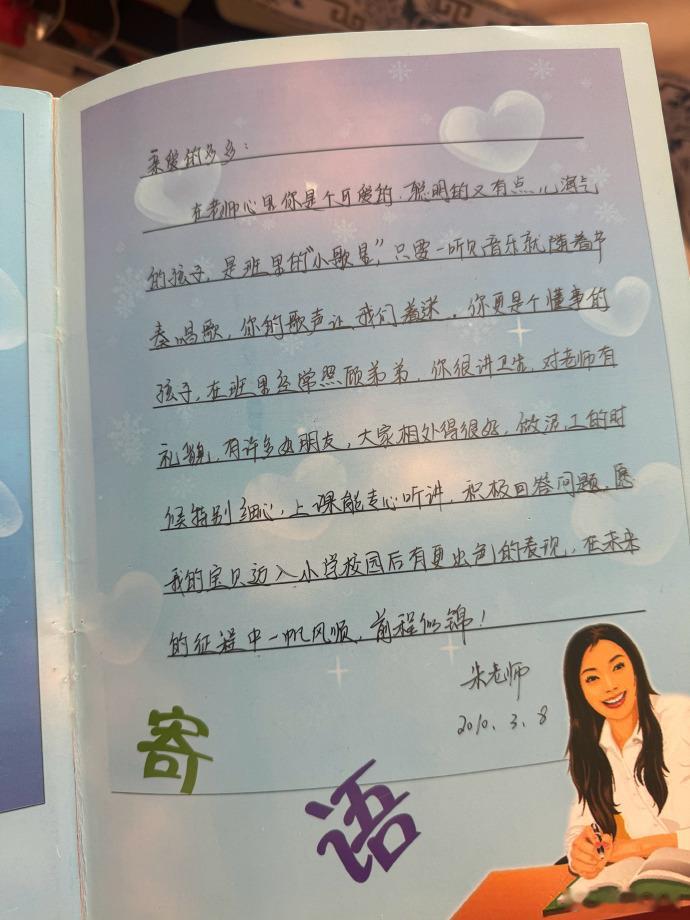 亲爱的多多：
在老师心里你是个可爱的、聪明的又有点儿淘气
的孩子，是班里的“小歌星”，只要一听见音乐就随着节
奏唱歌，你的歌声让我们着迷。你更是个懂事的
孩子，在班里经常照顾弟弟，你很讲卫生，对老师有
礼貌，有许多好朋友，大家相处得很好，做手工的时
候特别细心，上课能专心听讲，积极回答问题，愿
我的宝贝迈入小学校园后有更出色的表现，在未来
的征程中一帆风顺，前程似锦！
朱老师
2010.3.8
寄
语